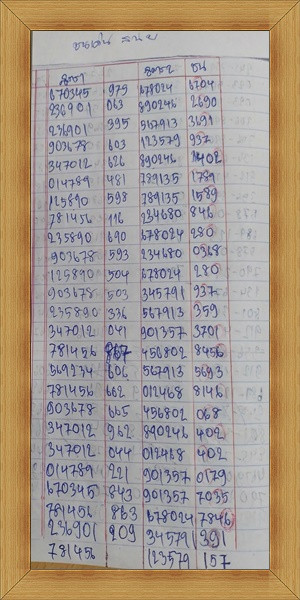 670345 979 678024 6704
236901 063 890246 2690
236901 395 567913 3691
903678 603 123579 937
347012 626 890246 1402
014789 481 789135 1789
125890 598 789135 1589
781456 116 234680 846
235890 690 678024 280
903678 593 234680 0368
125890 504 678024 280
903678 503 345791 937
235890 336 567913 359
347012 041 901357 3701
781456 867 456802 8456
569234 606 567913 5693
781456 662 012468 8146
903678 665 456802 068
347012 962 890246 402
347012 044 012468 402
014789 221 901357 0179
670345 843 901357 7035
781456 863 678024 7846
236901 209 345791 391
781456 123579 157